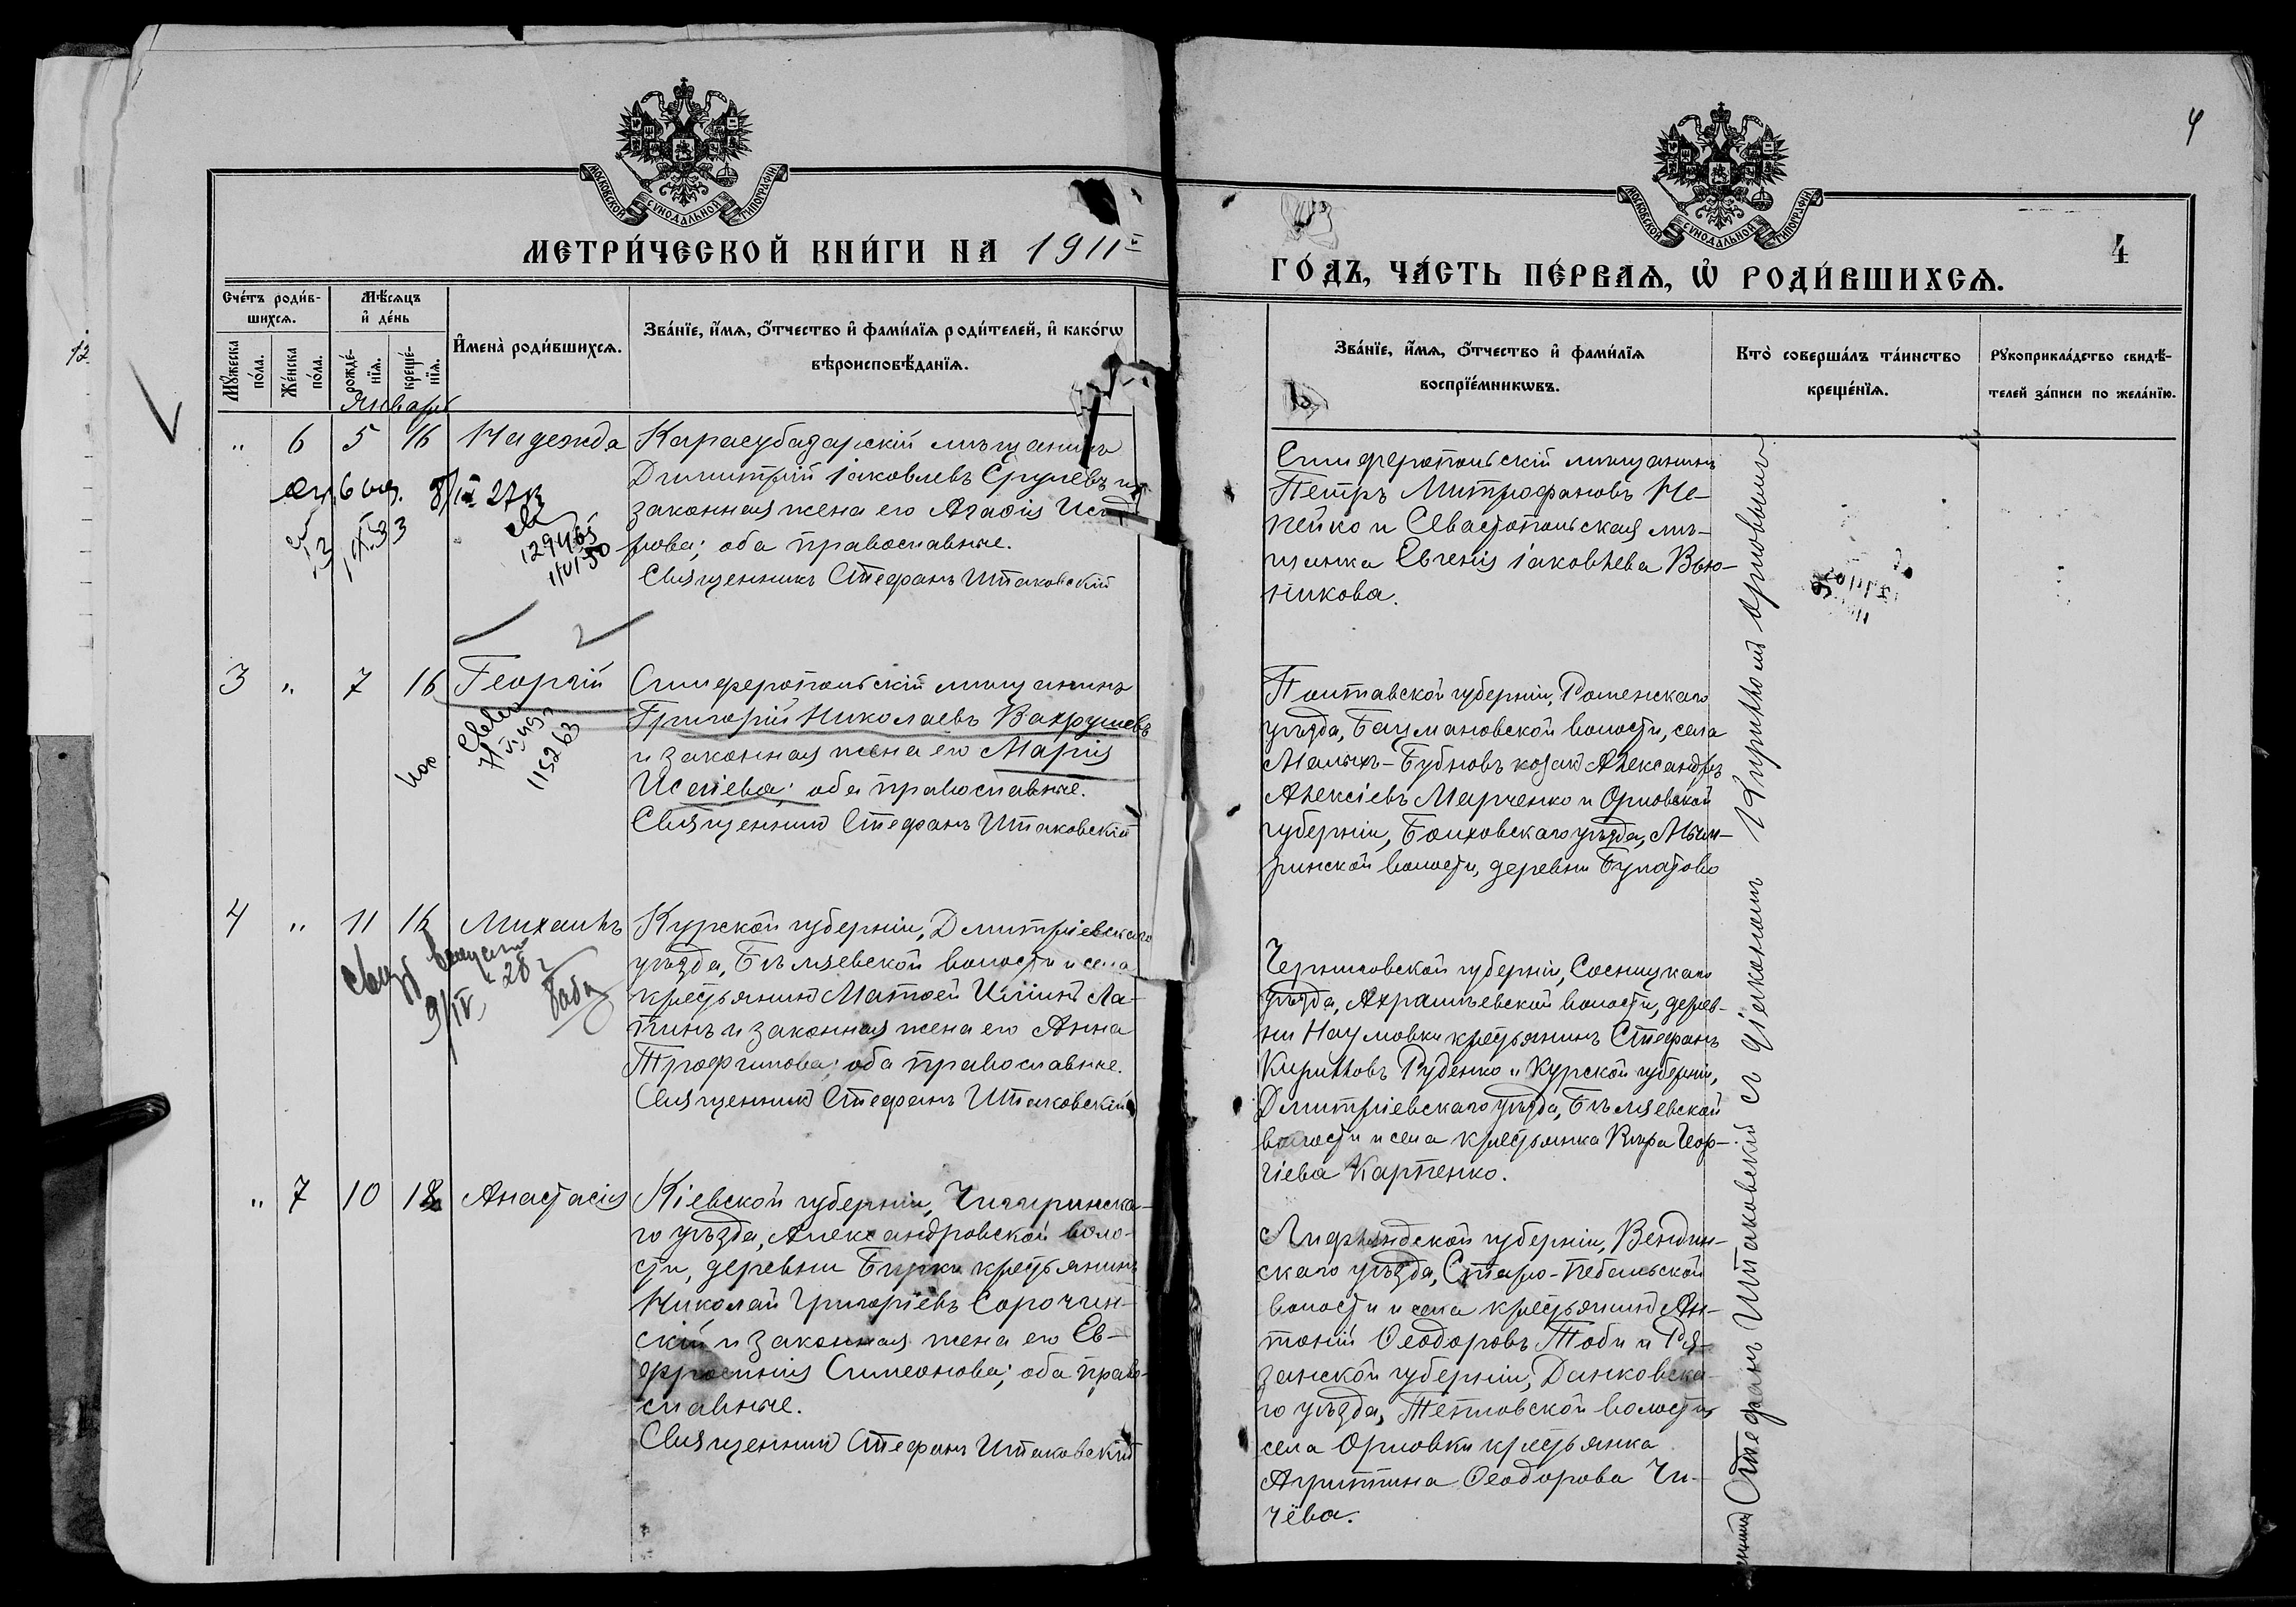 4
МОСКОВСКОЙ СѴНОДАЛЬНОЙ ТИПОГРАФІИ
МОСКОВСКОЙ СѴНОДАЛЬНОЙ ТИПОГРАФІИ
МЕТРИ́ЧЕСКОЙ КНИ́ГИ НА 1911й
ГО́ДЪ, ЧА́СТЬ ПЕ́РВАЯ, Ѡ҆ РОДИ́ВШИХСЯ.
4
Сче́тъ роди́в-
шихся.
Мѣ́сяцъ
и҆ де́нь
Мꙋ́жеска по́ла.
Же́нска по́ла.
рожде́-
нїя.
креще́-
нїя.
И҆мена̀ роди́вшихся.
Зва́нїе, и҆́мя, ѻ҆́тчество и҆ фами́лїя роди́телей, и҆ како́гѡ
вѣроисповѣ́данїя.
Зва́нїе, и҆́мя, ѻ҆́тчество и҆ фами́лїя
воспрїе́мникѡвъ.
Кто̀ соверша́лъ та́инство
креще́нїя.
Рꙋкоприкла́дство свидѣ́-
телей за́писи по жела́нїю.
Январь
" 6 5 16 Надежда
Карасубазарскій мѣщанинъ
Димитрій Іаковлевъ и
законная жена его Агаѳія
рова; оба православные.
Священникъ Стефанъ Штаковскій
8/III 27
129465
Симферопольскій мѣщанинъ
Петръ Митрофановъ Не-
пейко и Севастопольская мѣ-
щанка Евгенія Іаковлева Вью-
никова.
3 " 7 16 Георгій
Симферопольскій мѣщанинъ
Григорій Николаевъ Вахрушевъ
и законная жена его Марія
Исаіева; оба православные.
Священникъ Стефанъ Штаковскій
115263
Полтавской губерніи, Роменскаго
уѣзда, Бацмановской волости, села
Малыхъ-Бубновъ козакъ Александръ
Алексіевъ Марченко и Орловской
губерніи, Болховскаго уѣзда,
ринской волости, деревни Булатово
4 " 11 16 Михаилъ
Курской губерніи, Дмитріевскаго
уѣзда, Бѣляевской волости и села
крестьянинъ Матѳей Иліинъ Ла-
пинъ и законная жена его Анна
Трофимова; оба православные.
Священникъ Стефанъ Штаковскій
9/IV 28
Черниговской губерніи, Сосницкаго
уѣзда, Ахрамѣевской волости, дерев-
ни Наумовки крестьянинъ Стефанъ
Кирилловъ Руденко и Курской губерніи,
Дмитріевскаго уѣзда, Бѣляевской
волости и села крестьянка Вѣра Геор-
гіева Карпенко.
" 7 10 18 Анастасія
Кіевской губерніи, Чигиринска-
го уѣзда, Александровской воло-
сти, деревни Бирки крестьянинъ
Николай Григоріевъ Сорочин-
скій и законная жена его Ев-
фросинія Симеонова; оба право-
славные.
Священникъ Стефанъ Штаковскій
Лифляндской губерніи, Венден-
скаго уѣзда, Старо-Пебальской
волости и села крестьянинъ Ан-
тоній Ѳеодоровъ Тоби и Ря-
занской губерніи, Данковска-
го уѣзда, Тепловской волости
села Орловки крестьянка
Агриппина Ѳеодорова Чи-
чёва.
Стефанъ Штаковскій съ діакономъ Кирилломъ Орловымъ